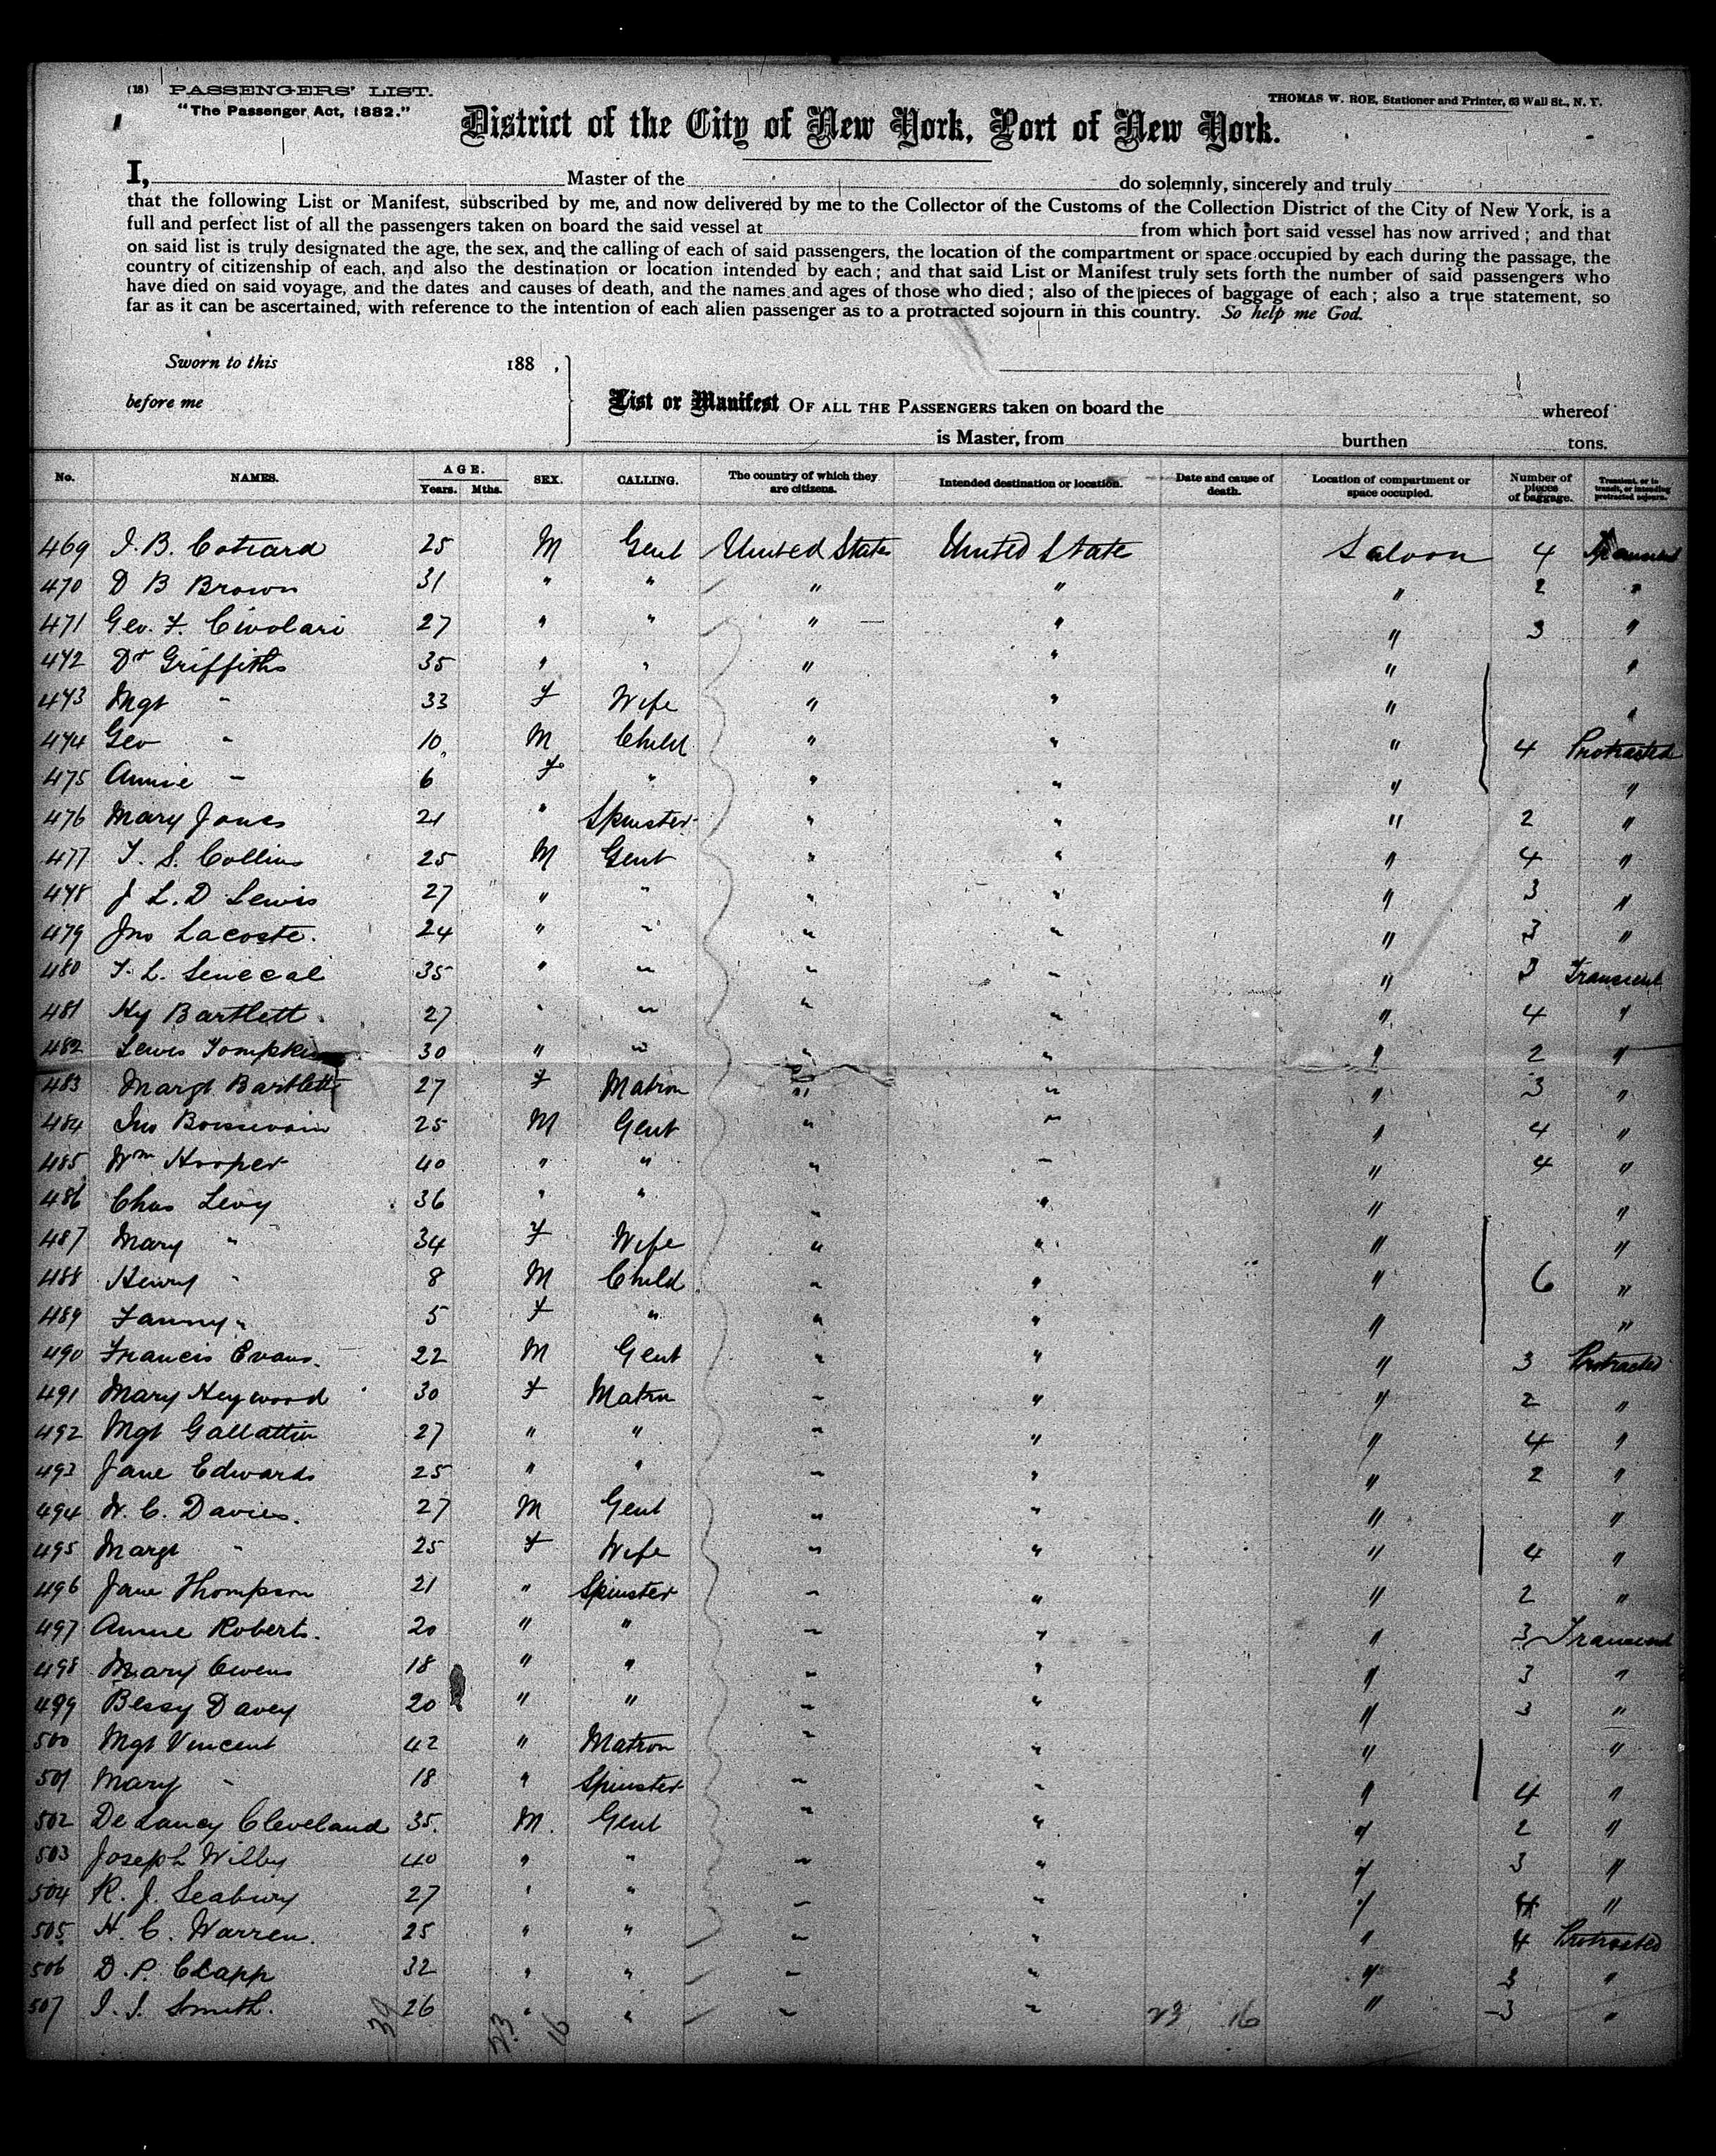 (18) PASSENGERS' LIST.
THOMAS W. ROE, Stationer and Printer, 63 Wall St., N. Y.
"The Passenger Act, 1882."
District of the City of New York, Port of New York.
I, Master of the do solemnly, sincerely and truly
that the following List or Manifest, subscribed by me, and now delivered by me to the Collector of the Customs of the Collection District of the City of New York, is a
full and perfect list of all the passengers taken on board the said vessel at from which port said vessel has now arrived; and that
on said list is truly designated the age, the sex, and the calling of each of said passengers, the location of the compartment or space occupied by each during the passage, the
country of citizenship of each, and also the destination or location intended by each; and that said List or Manifest truly sets forth the number of said passengers who
have died on said voyage, and the dates and causes of death, and the names and ages of those who died; also of the pieces of baggage of each; also a true statement, so
far as it can be ascertained, with reference to the intention of each alien passenger as to a protracted sojourn in this country. So help me God.
Sworn to this 188 ,
before me
List or Manifest OF ALL THE PASSENGERS taken on board the whereof
is Master, from burthen tons.
No. NAMES. AGE. Years. Mths. SEX. CALLING. The country of which they are citizens. Intended destination or location. Date and cause of death. Location of compartment or space occupied. Number of pieces of baggage. Transient, or in transit, or intending protracted sojourn.
469 J. B. 25 M Gent United State United State Saloon 4 Transient
470 D B Brown 31 " " " " " 2 "
471 Geo. F. Civolari 27 " " " " " 3 "
472 Dr Griffiths 35 " " " " " "
473 Mgt " 33 F Wife " " " "
474 Geo " 10 M Child " " " 4 Protracted
475 Annie " 6 F " " " " "
476 Mary Jones 21 " Spinster " " " 2 "
477 T. S. Collins 25 M Gent " " " 4 "
478 J L. D Lewis 27 " " " " " 3 "
479 Jno Lacoste. 24 " " " " " 3 "
480 T. L. Senecal 35 " " " " " 3 Transient
481 Hy Bartlett 27 " " " " " 4 "
482 Lewis Tompkins 30 " " " " " 2 "
483 Margt Bartlett 27 F Matron " " " 3 "
484 Jno Boissevain 25 M Gent " " " 4 "
485 Wm Hooper 40 " " " " " 4 "
486 Chas Levy 36 " " " " " "
487 Mary " 34 F Wife " " " "
488 Henry " 8 M Child " " " 6 "
489 Fanny " 5 F " " " " "
490 Francis Evans. 22 M Gent " " " 3 Protracted
491 Mary Heywood 30 F Matrn " " " 2 "
492 Mgt Gallattin 27 " " " " " 4 "
493 Jane Edwards 25 " " " " " 2 "
494 W. C. Davies. 27 M Gent " " " "
495 Margt " 25 F Wife " " " 4 "
496 Jane Thompson 21 " Spinster " " " 2 "
497 Annie Roberts. 20 " " " " " 3 Transient
498 Mary Owens 18 " " " " " 3 "
499 Bessy Davey 20 " " " " " 3 "
500 Mgt Vincent 42 " Matron " " " "
501 Mary " 18 " Spinster " " " 4 "
502 De Lancy Cleveland 35. M. Gent " " " 2 "
503 Joseph Wilby 40 " " " " " 3 "
504 R. J. Seabury 27 " " " " " 4 "
505 H. C. Warren. 25 " " " " " 4 Protracted
506 D. P. Clapp 32 " " " " " 3 "
507 J. J. Smith. 26 " " " " " 3 "
39 23 16 23 16